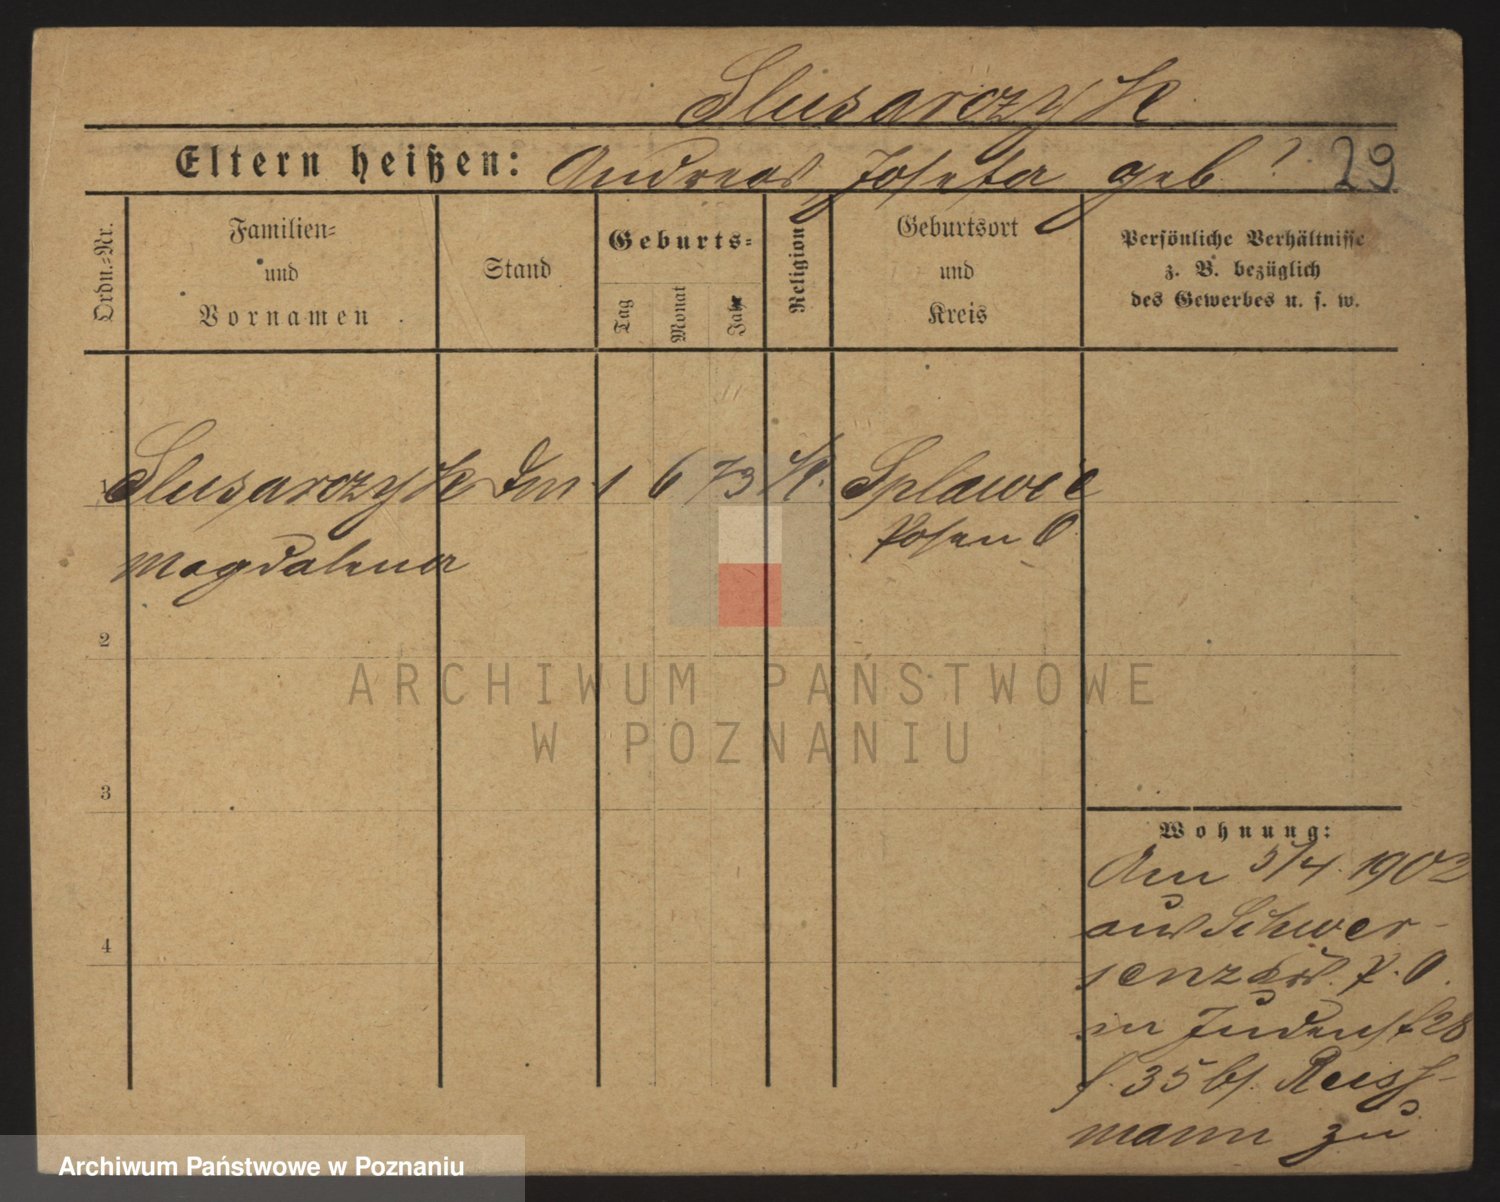 Slusarczyk
Eltern heißen: Andreas, Josefa geb ? 29
Ordn.-Nr.
Familien-
und
Vornamen
Stand
Geburts-
Tag
Monat
Jahr
Religion
Geburtsort
und
Kreis
Persönliche Verhältnisse
z. B. bezüglich
des Gewerbes u. s. w.
1 Slusarczyk 1 6 73 K. Splawie
Magdalena Posen O
2
3
4
Wohnung:
Am 5/4. 1902
aus Schwer-
senz P. O.
in Judenst 28
35 bf. Reiss-
mann zu
ARCHIWUM PAŃSTWOWE
W POZNANIU
Archiwum Państwowe w Poznaniu